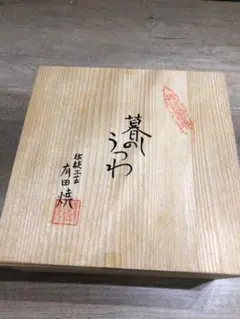 暮しの
うつわ
伝統工芸
有田焼